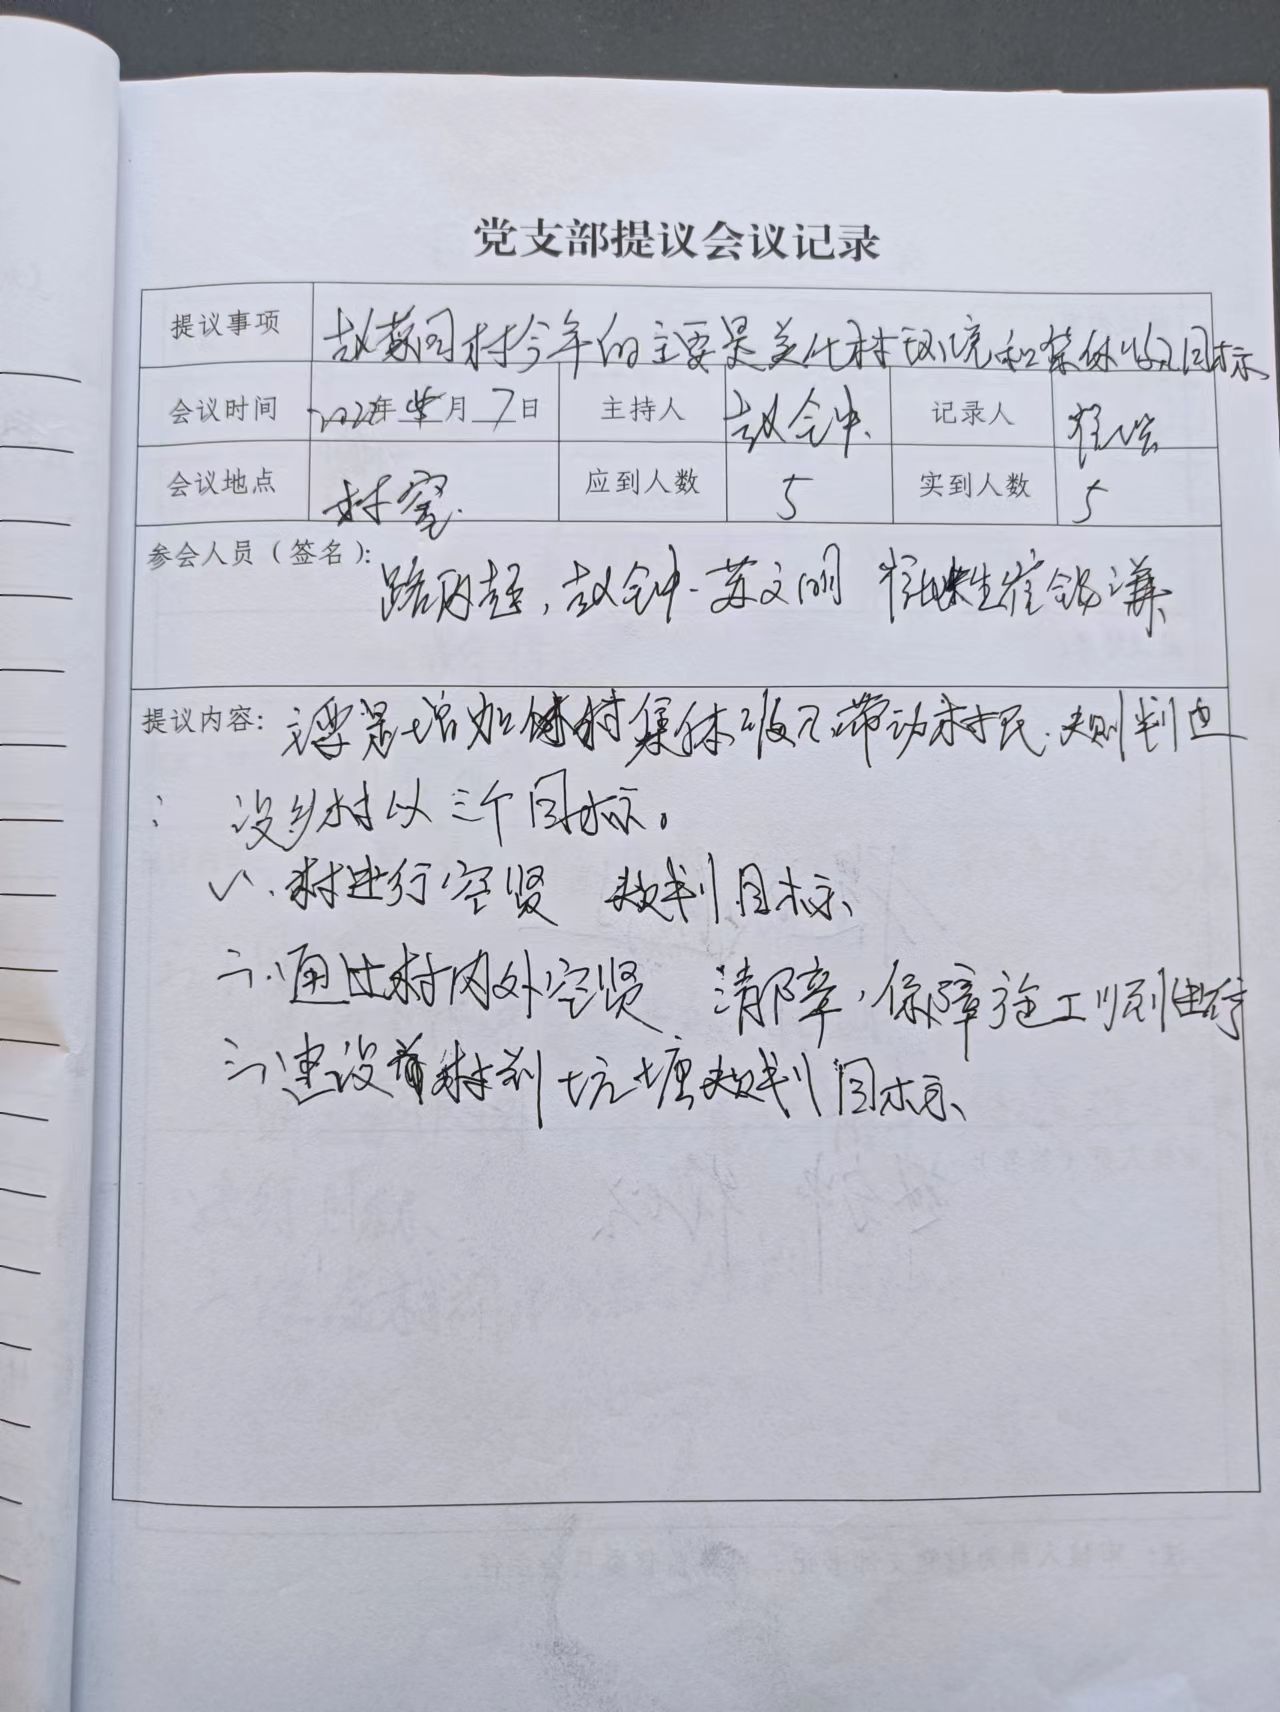 党支部提议会议记录
提议事项 赵蔡同村今年的主要是美化村环境和集体收入目标
会议时间 2022年 月7日 主持人 赵会中 记录人
会议地点 村室 应到人数 5 实到人数 5
参会人员（签名）： 赵会中 苏文明 崔锡谦
提议内容： 主要是增加村集体收入带动村民
没乡村以三个目标。
村进行空贤 规划目标
二、通过村内外空贤 清障，保障施工顺利进行
三、建设 坑塘规划目标